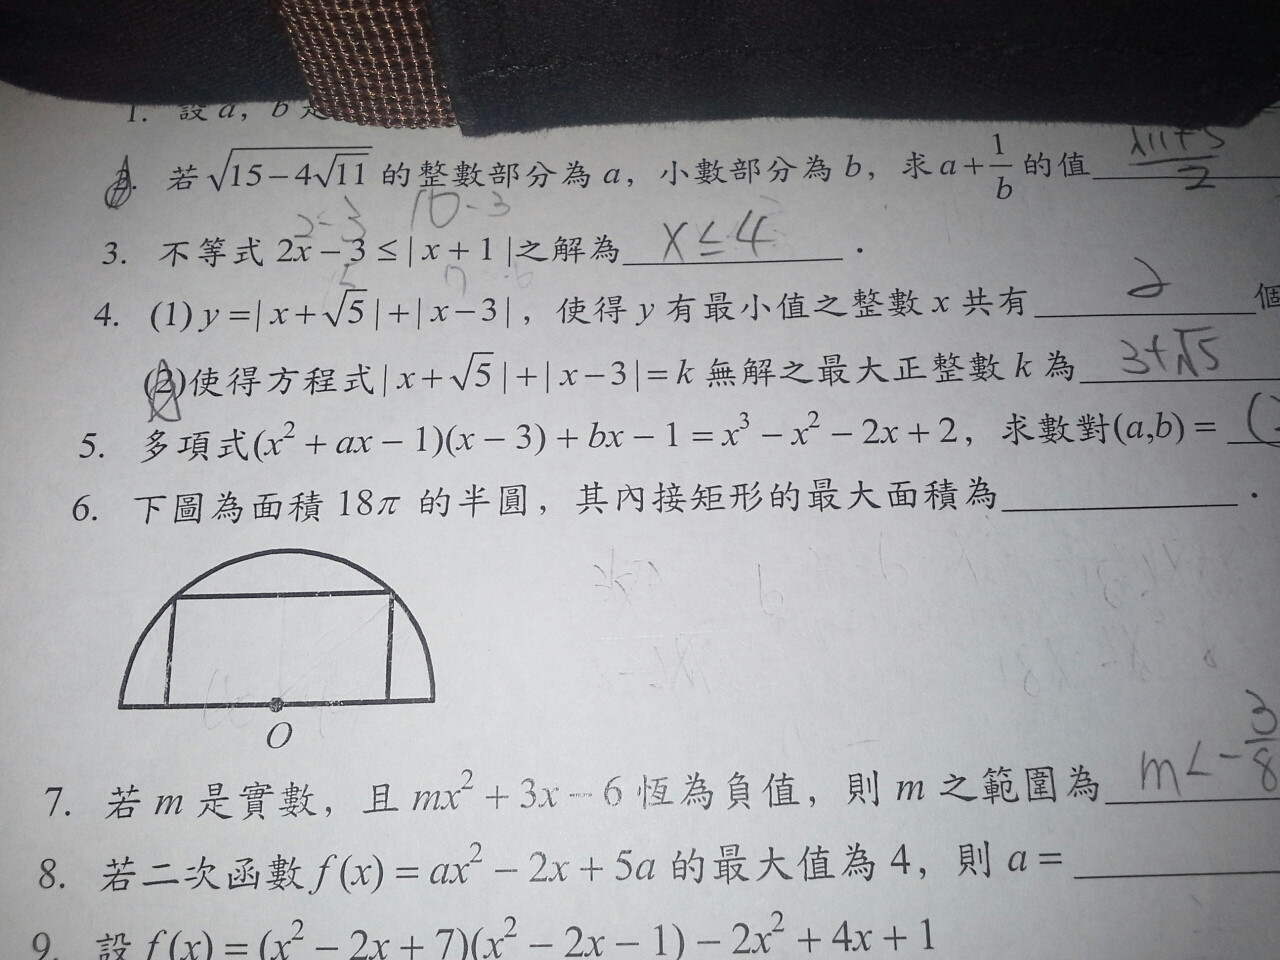 1. 設 a，b
2. 若 √(15－4√11) 的整數部分為 a，小數部分為 b，求 a＋1/b 的值 √11+5/2
3. 不等式 2x－3 ≤ | x＋1 |之解為 x ≤ 4 .
4. (1) y＝| x＋√5 |＋| x－3 |，使得 y 有最小值之整數 x 共有 2 個
(2)使得方程式 | x＋√5 |＋| x－3 |＝k 無解之最大正整數 k 為 3+√5
5. 多項式(x²＋ax－1)(x－3)＋bx－1＝x³－x²－2x＋2，求數對(a,b)＝ (
6. 下圖為面積 18π 的半圓，其內接矩形的最大面積為 .
O
7. 若 m 是實數，且 mx²＋3x－6 恆為負值，則 m 之範圍為 m<-3/8
8. 若二次函數 f(x)＝ax²－2x＋5a 的最大值為 4，則 a＝
9. 設 f(x)＝(x²－2x＋7)(x²－2x－1)－2x²＋4x＋1